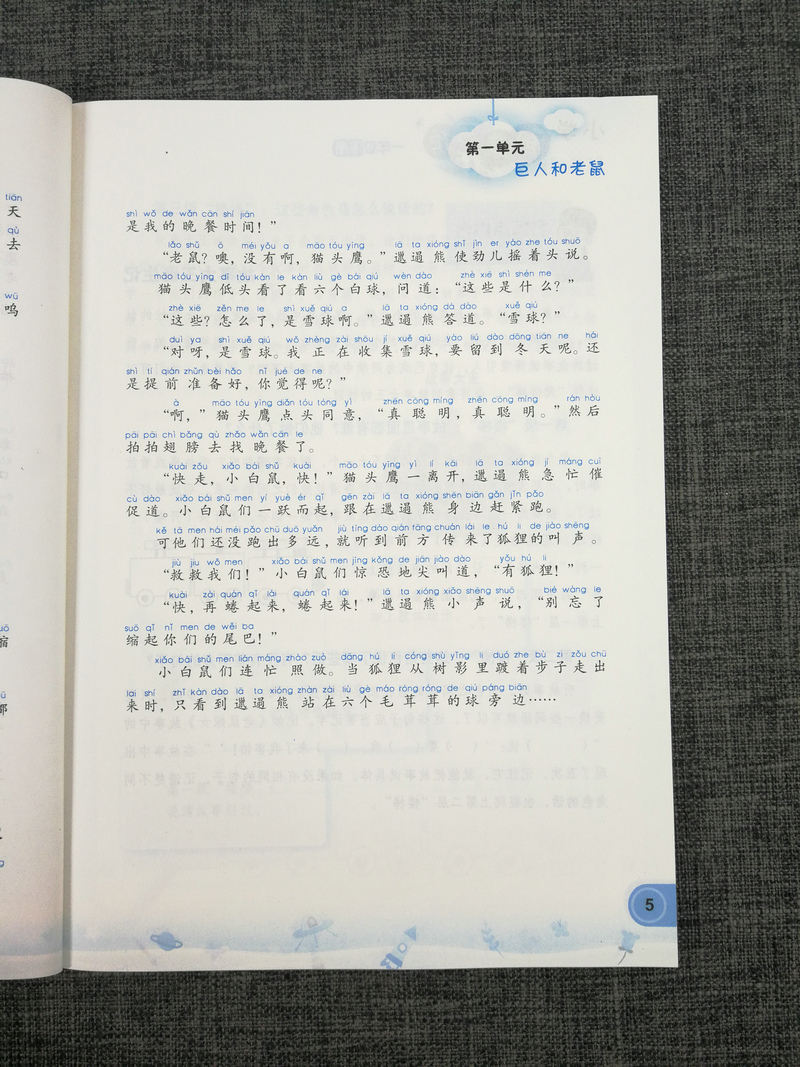 tiān
天
qù
去
wū
呜
第一单元
巨人和老鼠
shì wǒ de wǎn cān shí jiān
是我的晚餐时间！”
lǎo shǔ ō méi yǒu a māo tóu yīng lā ta xióng shǐ jìn er yáo zhe tóu shuō
“老鼠？噢，没有啊，猫头鹰。”邋遢熊使劲儿摇着头说。
māo tóu yīng dī tóu kàn le kàn liù gè bái qiú wèn dào zhè xiē shì shén me
猫头鹰低头看了看六个白球，问道：“这些是什么？”
zhè xiē zěn me le shì xuě qiú a lā ta xióng dá dào xuě qiú
“这些？怎么了，是雪球啊。”邋遢熊答道。“雪球？”
duì ya shì xuě qiú wǒ zhèng zài shōu jí xuě qiú yào liú dào dōng tiān ne hái
“对呀，是雪球。我正在收集雪球，要留到冬天呢。还
shì tí qián zhǔn bèi hǎo nǐ jué de ne
是提前准备好，你觉得呢？”
à māo tóu yīng diǎn tóu tóng yì zhēn cōng míng zhēn cōng míng rán hòu
“啊，”猫头鹰点头同意，“真聪明，真聪明。”然后
pāi pāi chì bǎng qù zhǎo wǎn cān le
拍拍翅膀去找晚餐了。
kuài zǒu xiǎo bái shǔ kuài māo tóu yīng yì lí kāi lā ta xióng jí máng cuī
“快走，小白鼠，快！”猫头鹰一离开，邋遢熊急忙催
cù dào xiǎo bái shǔ men yí yuè ér qǐ gēn zài lā ta xióng shēn biān gǎn jǐn pǎo
促道。小白鼠们一跃而起，跟在邋遢熊身边赶紧跑。
kě tā men hái méi pǎo chū duō yuǎn jiù tīng dào qián fāng chuán lái le hú li de jiào shēng
可他们还没跑出多远，就听到前方传来了狐狸的叫声。
jiù jiu wǒ men xiǎo bái shǔ men jīng kǒng de jiān jiào dào yǒu hú li
“救救我们！”小白鼠们惊恐地尖叫道，“有狐狸！”
kuài zài quán qǐ lái quán qǐ lái lā ta xióng xiǎo shēng shuō bié wàng le
“快，再蜷起来，蜷起来！”邋遢熊小声说，“别忘了
suō qǐ nǐ men de wěi ba
缩起你们的尾巴！”
xiǎo bái shǔ men lián máng zhào zuò dāng hú li cóng shù yǐng lǐ duó zhe bù zi zǒu chū
小白鼠们连忙照做。当狐狸从树影里踱着步子走出
lái shí zhǐ kàn dào lā ta xióng zhàn zài liù gè máo róng róng de qiú páng biān
来时，只看到邋遢熊站在六个毛茸茸的球旁边……
5